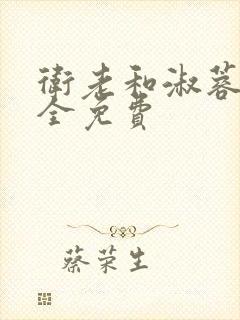 衛老和淑蓉
全免費
蔡荣生